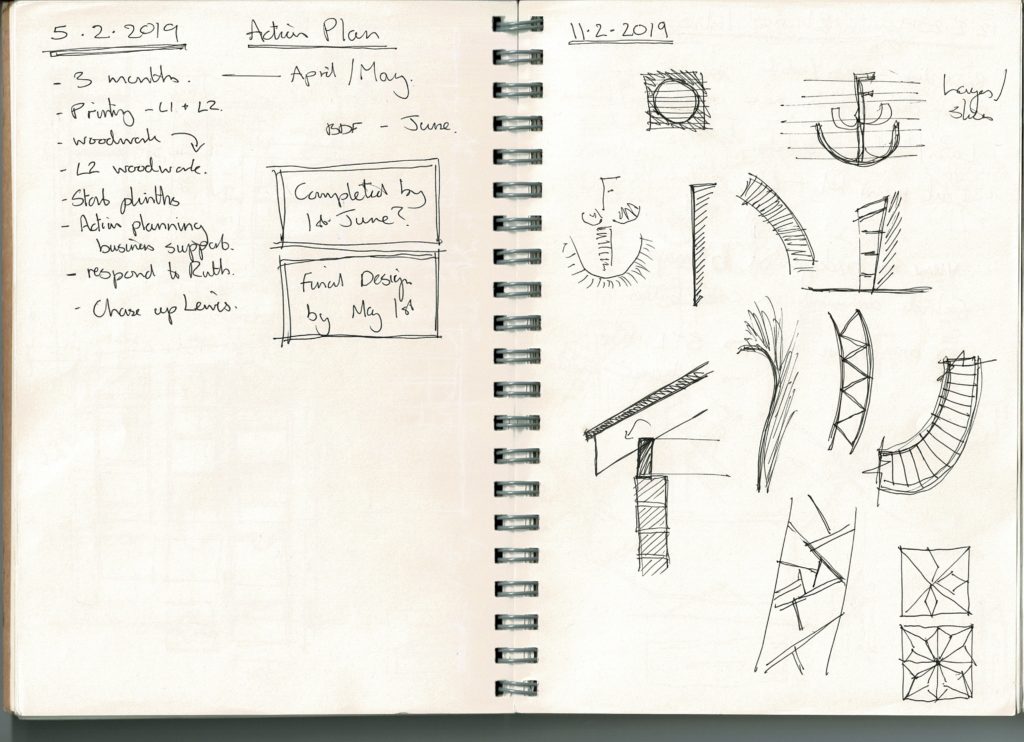 5.2.2019
Action Plan
- 3 months.
— April/May.
- Printing - L1 + L2.
- woodwork
BDF - June.
- L2 woodwork.
- Start plinths
- Action planning
business support.
- respond to Ruth.
- Chase up Lewis.
Completed by
1st June?
Final Design
by May 1st
11.2.2019
Layers/
slices